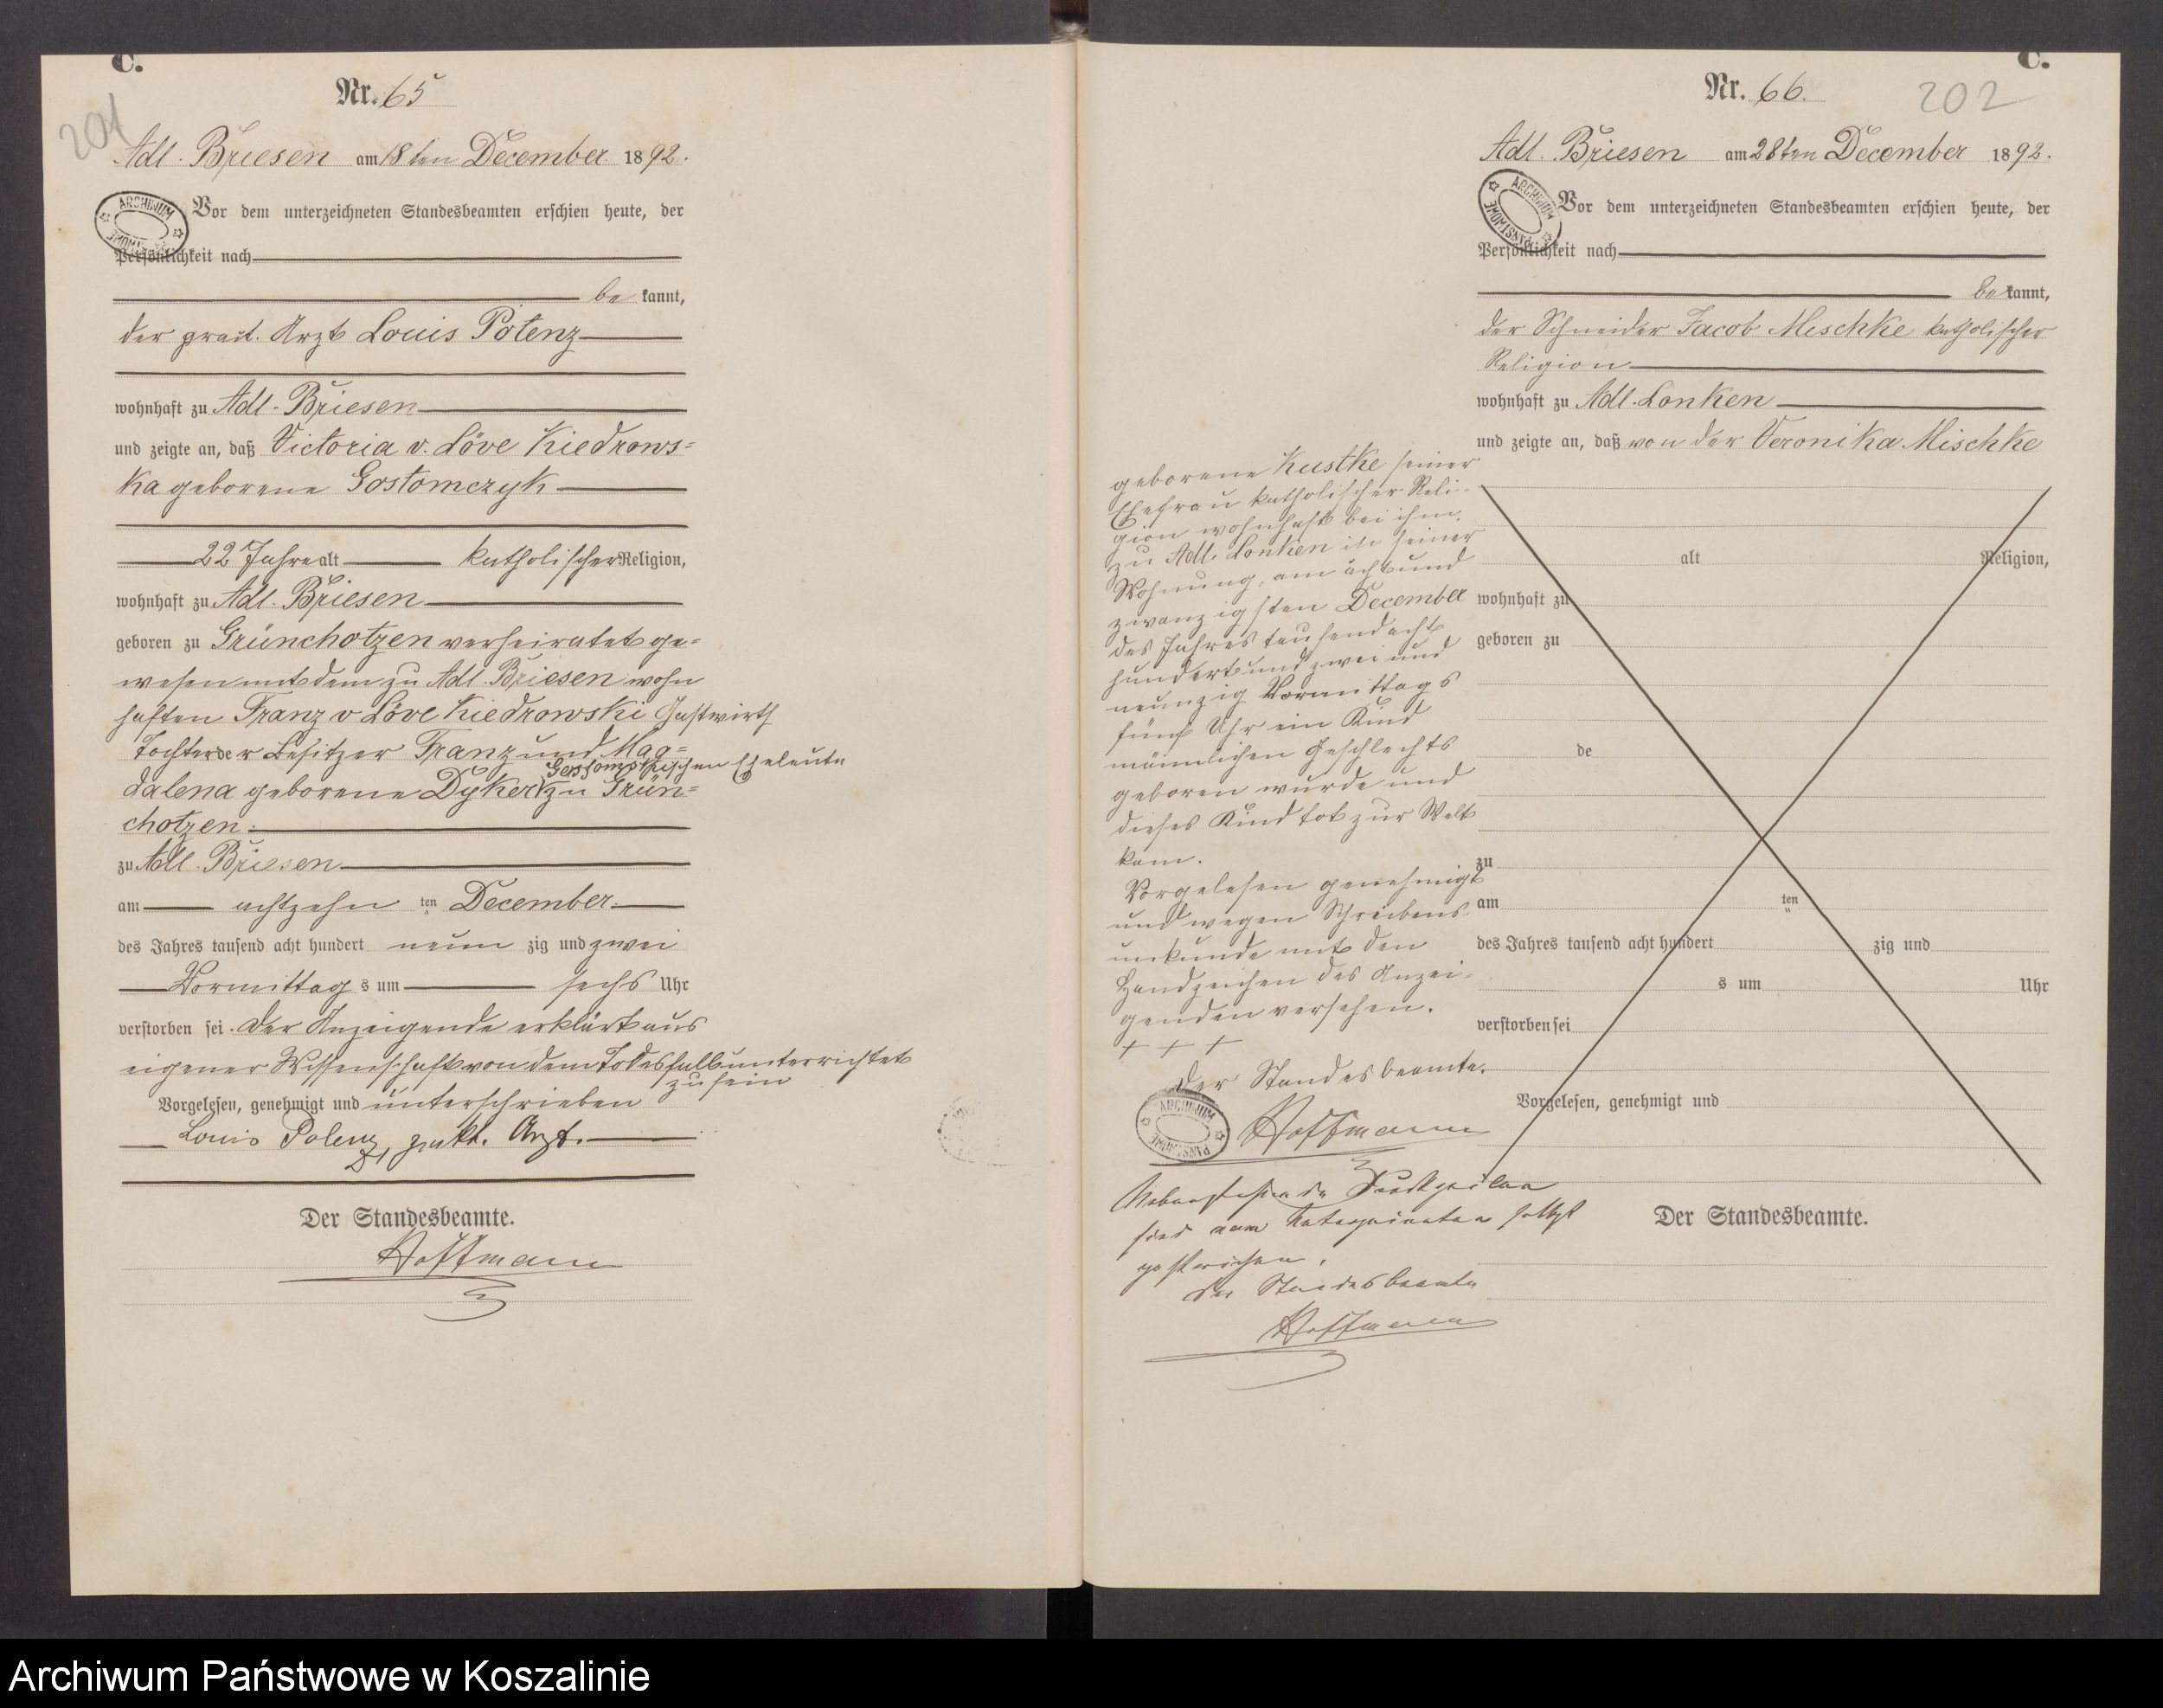 C.
Nr. 65
201
Adl. Briesen am 18ten December 1892.
ARCHIWUM
Vor dem unterzeichneten Standesbeamten erschien heute, der
Persönlichkeit nach
be kannt,
der pract. Arzt Louis Potenz
wohnhaft zu Adl. Briesen
und zeigte an, daß Victoria v. Löve Kiedrows=
ka geborene Gostomczyk
22 Jahre alt katholischer Religion,
wohnhaft zu Adl. Briesen
geboren zu Grünchotzen verheiratet ge=
wesen mit dem zu Adl. Briesen wohn
haften Franz v Löve Kiedrowski Gastwirth
Tochter der Besitzer Franz und Mag=
Gostomskischen Eheleute
dalena geborene Dyker zu Grün=
chotzen.
zu Adl. Briesen
am achtzehn ten December
des Jahres tausend acht hundert neun zig und zwei
Vormittag s um sechs Uhr
verstorben sei. Der Anzeigende erklärt aus
eigener Wissenschaft von dem Todesfall unterrichtet
zu sein
Vorgelesen, genehmigt und unterschrieben
Louis Polenz, prakt. Arzt.
Der Standesbeamte.
Hoffmann
C.
Nr. 66.
202
Adl. Briesen am 28ten December 1892.
ARCHIWUM
Vor dem unterzeichneten Standesbeamten erschien heute, der
Persönlichkeit nach
be kannt,
der Schneider Jacob Mischke katholischer
Religion
wohnhaft zu Adl. Lonken
und zeigte an, daß von der Veronika Mischke
geborene Kustke seiner
Ehefrau katholischer Reli-
gion wohnhaft bei ihm
zu Adl. Lonken in seiner
Wohnung, am acht und
zwanzigsten December
des Jahres tausend acht
hundert und zwei und
neunzig Vormittags
fünf Uhr ein Kind
männlichen Geschlechts
geboren wurde und
dieses Kind tot zur Welt
kam.
Vorgelesen genehmigt
und wegen Schreibens
unkunde mit den
Handzeichen des Anzei-
genden versehen.
+ + +
Der Standesbeamte.
ARCHIWUM PAŃSTWOWE
Hoffmann
Nebenstehende Druckzeilen
sind
gestrichen.
Der Standesbeamte
Hoffmann
alt Religion,
wohnhaft zu
geboren zu
de
zu
am ten
des Jahres tausend acht hundert zig und
s um Uhr
verstorben sei
Vorgelesen, genehmigt und
Der Standesbeamte.
Archiwum Państwowe w Koszalinie